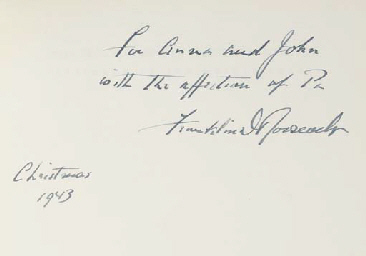 For Anna and John
with the affection of Pa
Franklin D Roosevelt
Christmas
1943